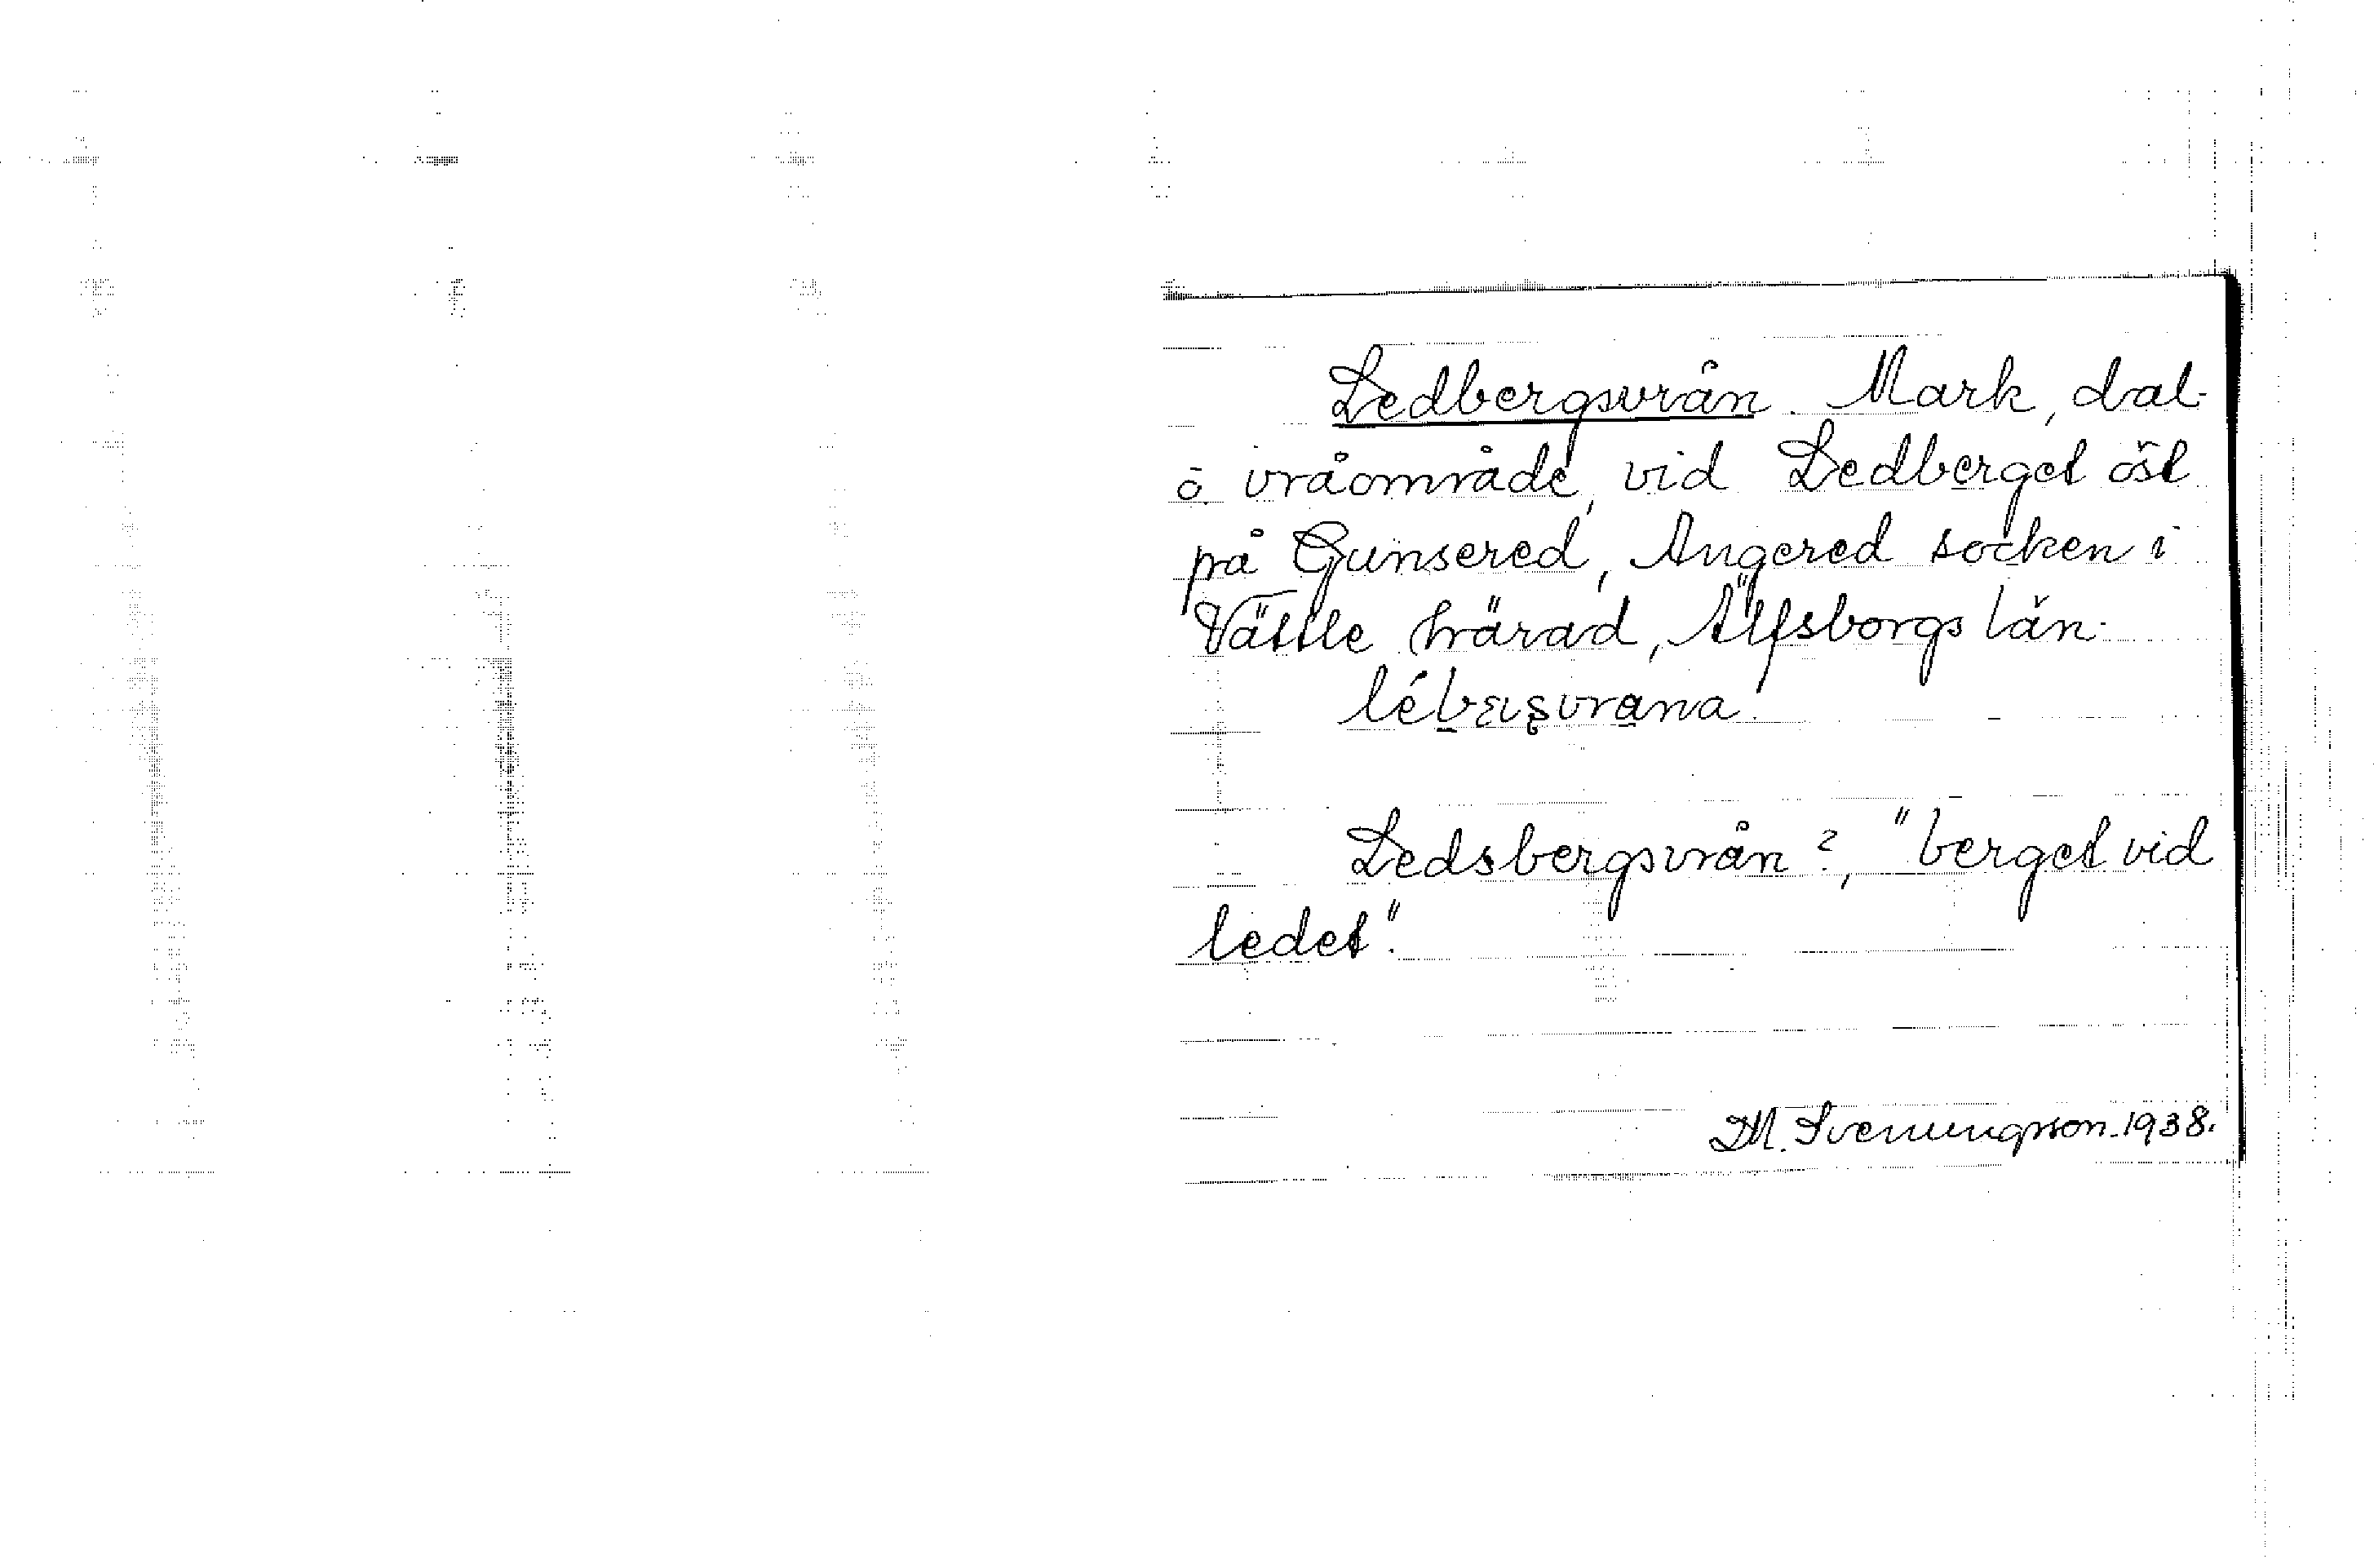 Ledbergsvrån. Mark, dal-
o. vråområde, vid Ledberget öst
på Gunsered, Angered socken i
Vättle härad, Älfsborgs län.
Ledsbergsvrån?, "berget vid
ledet".
D.M. Svenungsson. 1938.